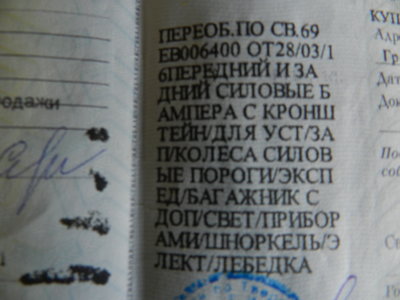 ПЕРЕОБ.ПО СВ.69
ЕВ006400 ОТ28/03/1
6ПЕРЕДНИЙ И ЗА
ДНИЙ СИЛОВЫЕ Б
АМПЕРА С КРОНШ
ТЕЙН/ДЛЯ УСТ/ЗА
П/КОЛЕСА СИЛОВ
ЫЕ ПОРОГИ/ЭКСП
ЕД/БАГАЖНИК С
ДОП/СВЕТ/ПРИБОР
АМИ/ШНОРКЕЛЬ/Э
ЛЕКТ/ЛЕБЕДКА
одажи
КУП
Адр
Гр
Дат
До